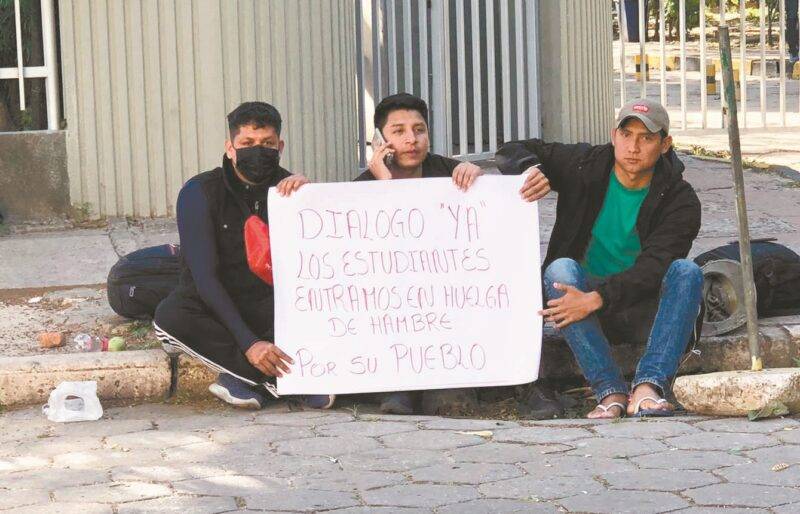 DIALOGO "YA"
LOS ESTUDIANTES
ENTRAMOS EN HUELGA
DE HAMBRE
POR SU PUEBLO